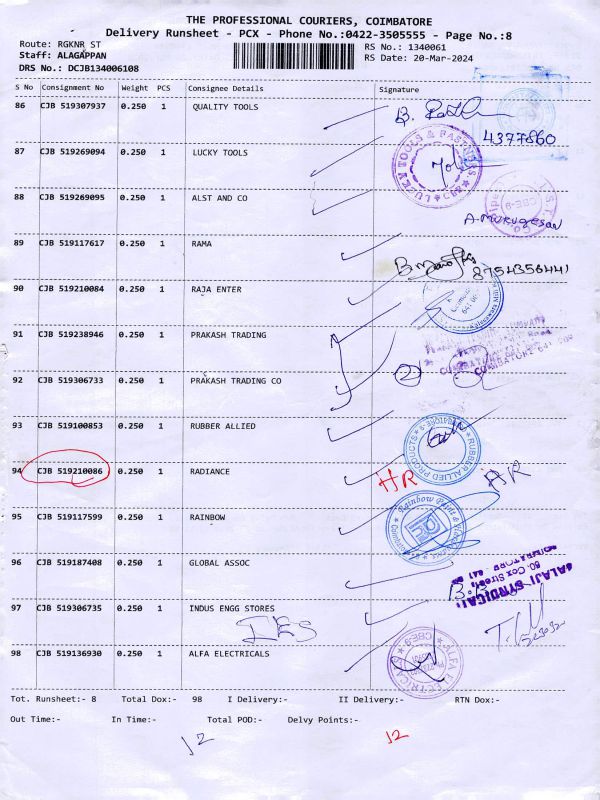 THE PROFESSIONAL COURIERS, COIMBATORE
Delivery Runsheet - PCX - Phone No.:0422-3505555 - Page No.:8
Route: RGKNR ST
RS No.: 1340061
Staff: ALAGAPPAN
RS Date: 20-Mar-2024
DRS No.: DCJB134006108
S No Consignment No Weight PCS Consignee Details Signature
86 CJB 519307937 0.250 1 QUALITY TOOLS
4377860
87 CJB 519269094 0.250 1 LUCKY TOOLS
LUCKY TOOLS & FASTNERS
88 CJB 519269095 0.250 1 ALST AND CO
A. MURUGESAN
89 CJB 519117617 0.250 1 RAMA
8754356441
90 CJB 519210084 0.250 1 RAJA ENTER
91 CJB 519238946 0.250 1 PRAKASH TRADING
COIMBATORE 641 009
92 CJB 519306733 0.250 1 PRAKASH TRADING CO
2
93 CJB 519100853 0.250 1 RUBBER ALLIED
RUBBER ALLIED PRODUCTS
94 CJB 519210086 0.250 1 RADIANCE
HR AR
95 CJB 519117599 0.250 1 RAINBOW
Rainbow Paint &
96 CJB 519187408 0.250 1 GLOBAL ASSOC
BALAJI SYNDICATE
60, Cox Street,
97 CJB 519306735 0.250 1 INDUS ENGG STORES
IES
98 CJB 519136930 0.250 1 ALFA ELECTRICALS
ALFA ELECTRICALS CBE-9
Tot. Runsheet:- 8 Total Dox:- 98 I Delivery:- II Delivery:- RTN Dox:-
Out Time:- In Time:- Total POD:- Delvy Points:-
12 12